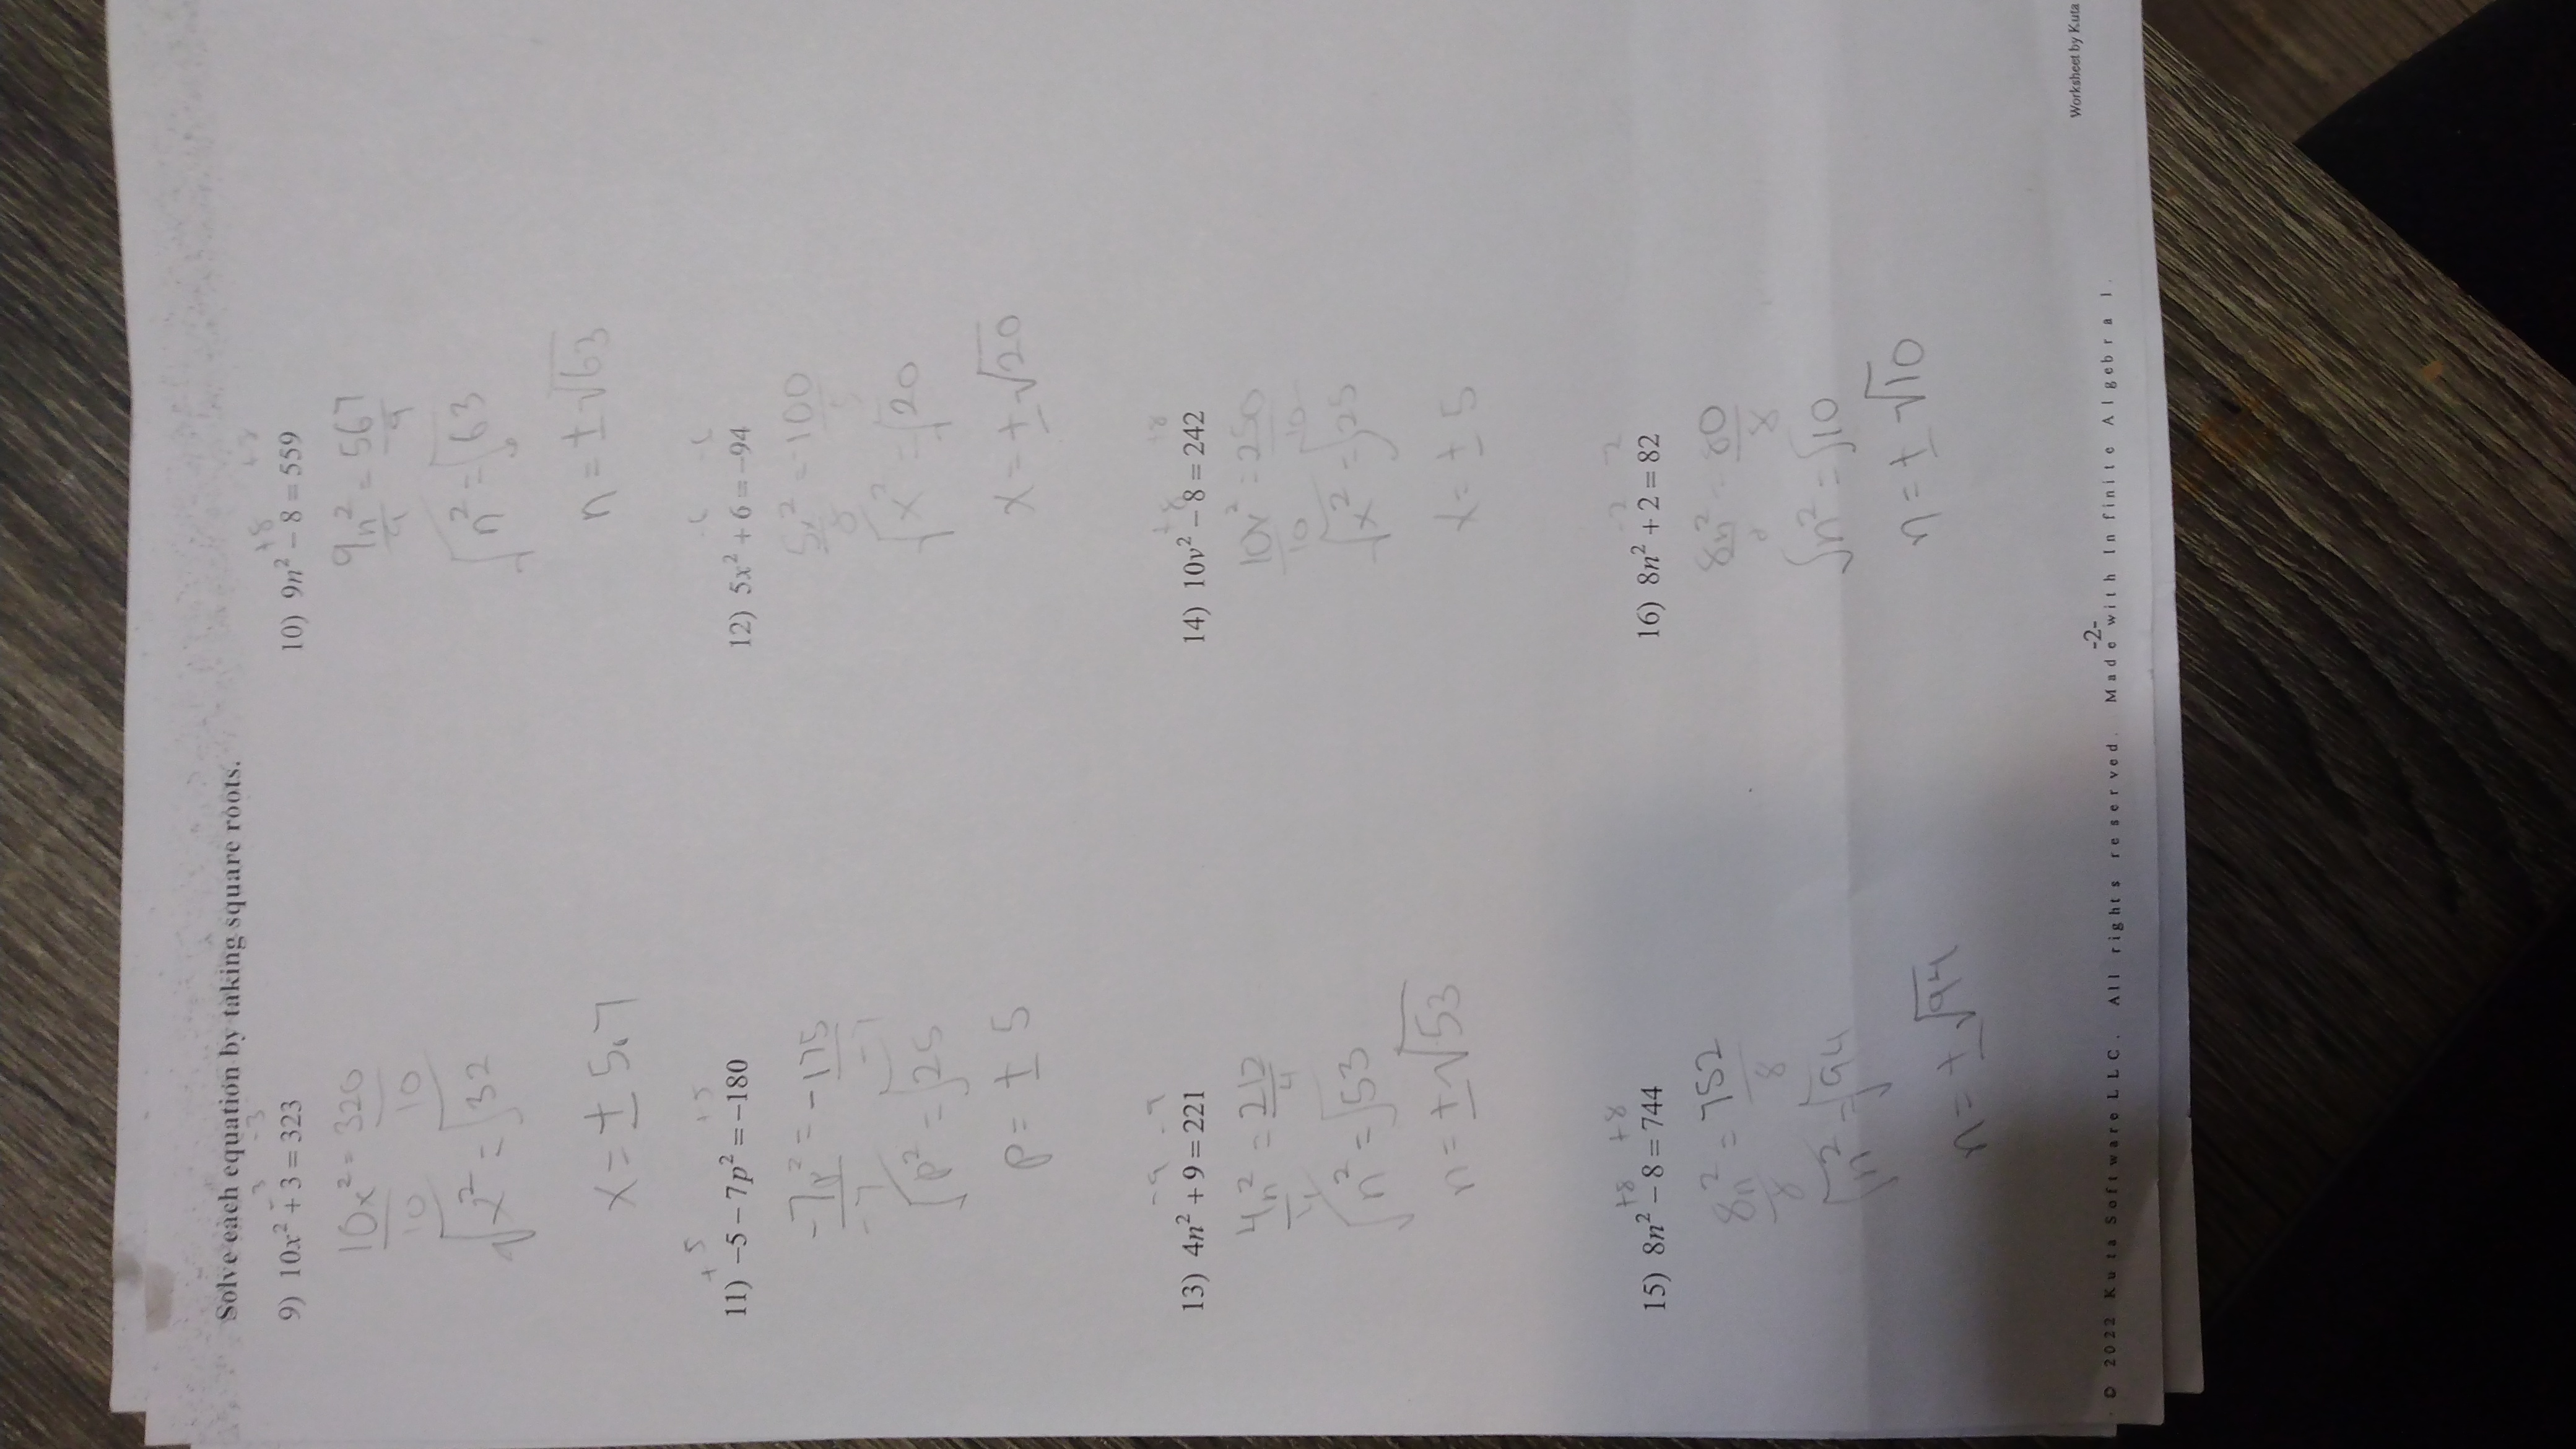 Solve each equation by taking square roots.
9) 10x² + 3 = 323
-3 -3
10x² = 320
10 10
√x² = √32
x = ± 5.7
10) 9n² − 8 = 559
+8 +8
9n² = 567
9 9
√n² = √63
n = ± √63
11) −5 − 7p² = −180
+5 +5
-7p² = -175
-7 -7
√p² = √25
p = ± 5
12) 5x² + 6 = −94
-6 -6
5x² = -100
√x² = √20
x = ± √20
13) 4n² + 9 = 221
-9 -9
4n² = 212
4 4
√n² = √53
n = ± √53
14) 10v² − 8 = 242
+8 +8
10x² = 250
10 10
√x² = √25
x = ± 5
15) 8n² − 8 = 744
+8 +8
8n² = 752
8 8
√n² = √94
n = ± √94
16) 8n² + 2 = 82
-2 -2
8n² = 80
8 8
√n² = √10
n = ± √10
-2-
© 2022 Kuta Software LLC. All rights reserved. Made with Infinite Algebra 1.
Worksheet by Kuta